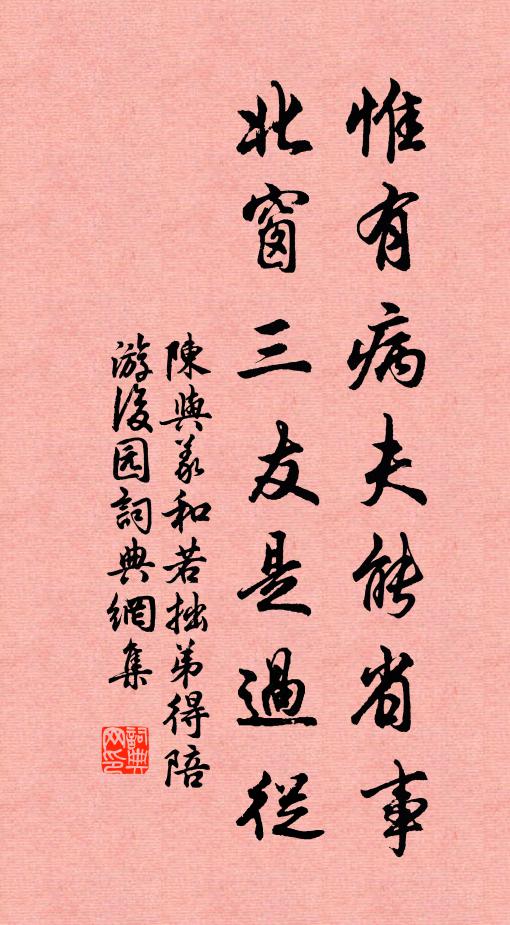 惟有病夫能省事
北窗三友是過從
陳與義和若拙弟得陪
游後园詞典網集
詞典网印